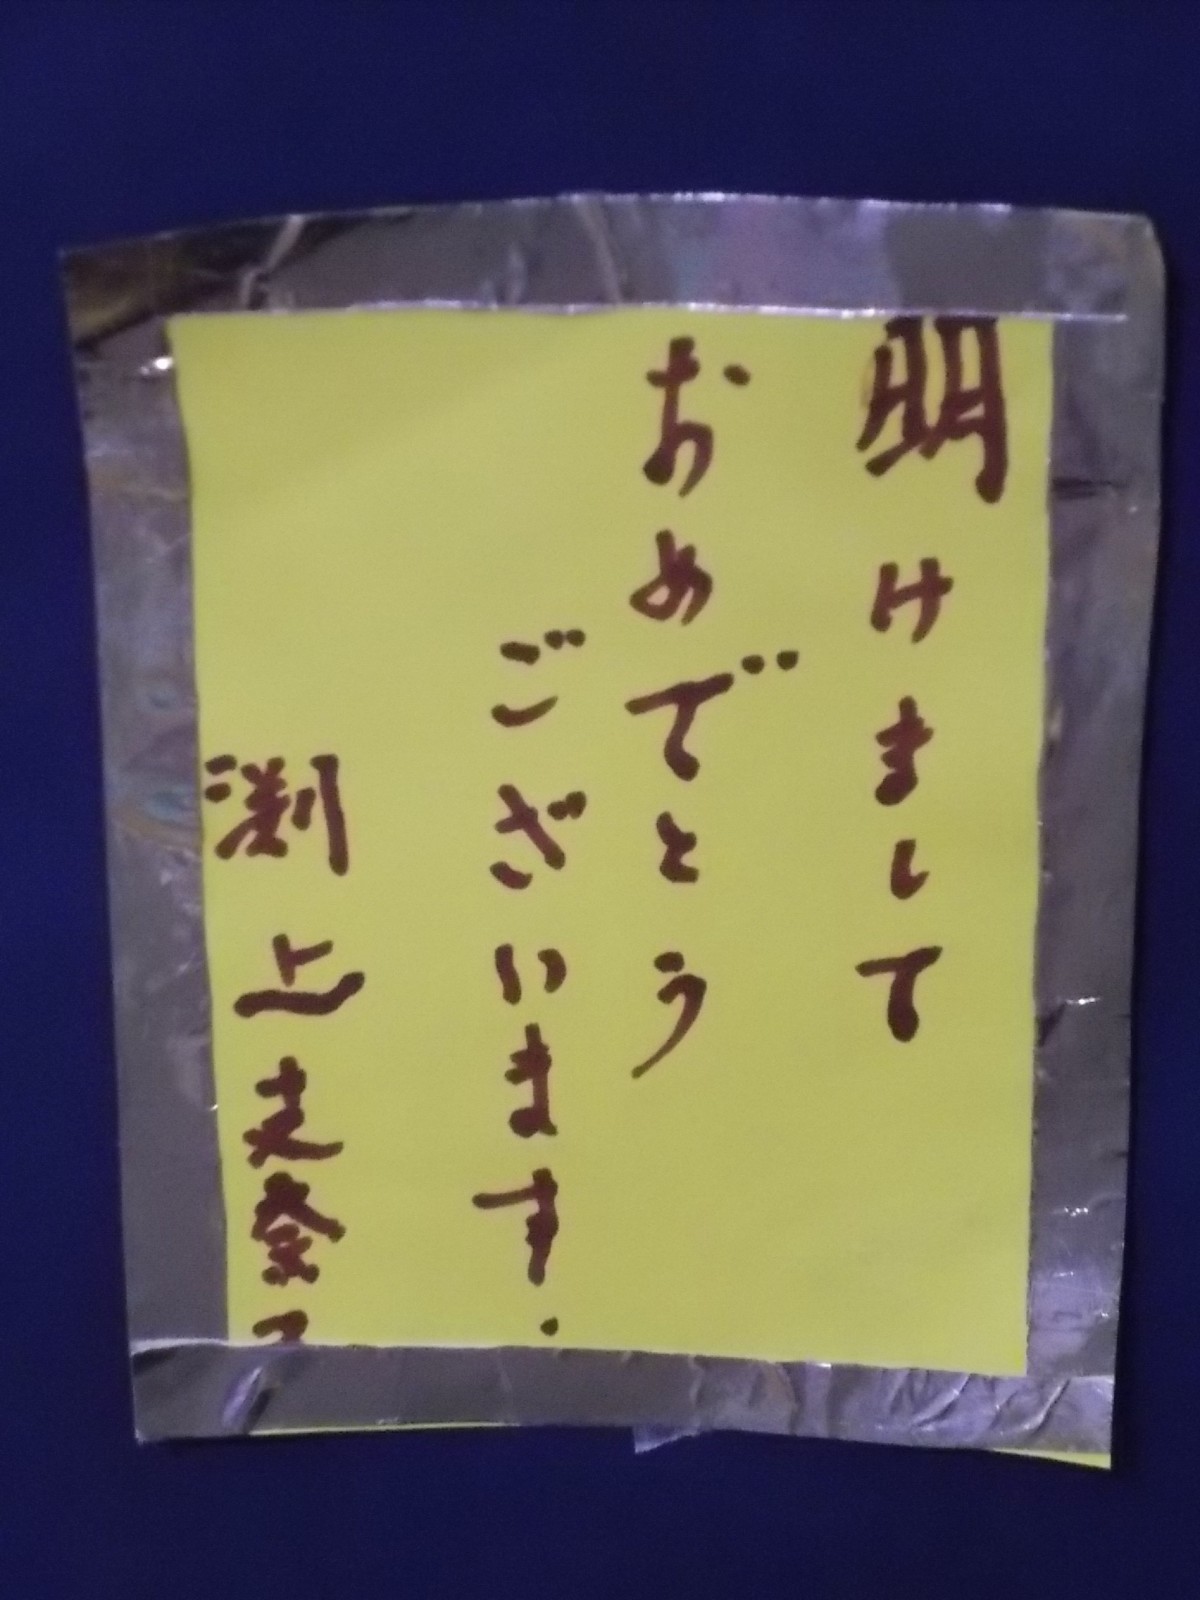 明けまして
おめでとう
ございます.
渕上支奈子